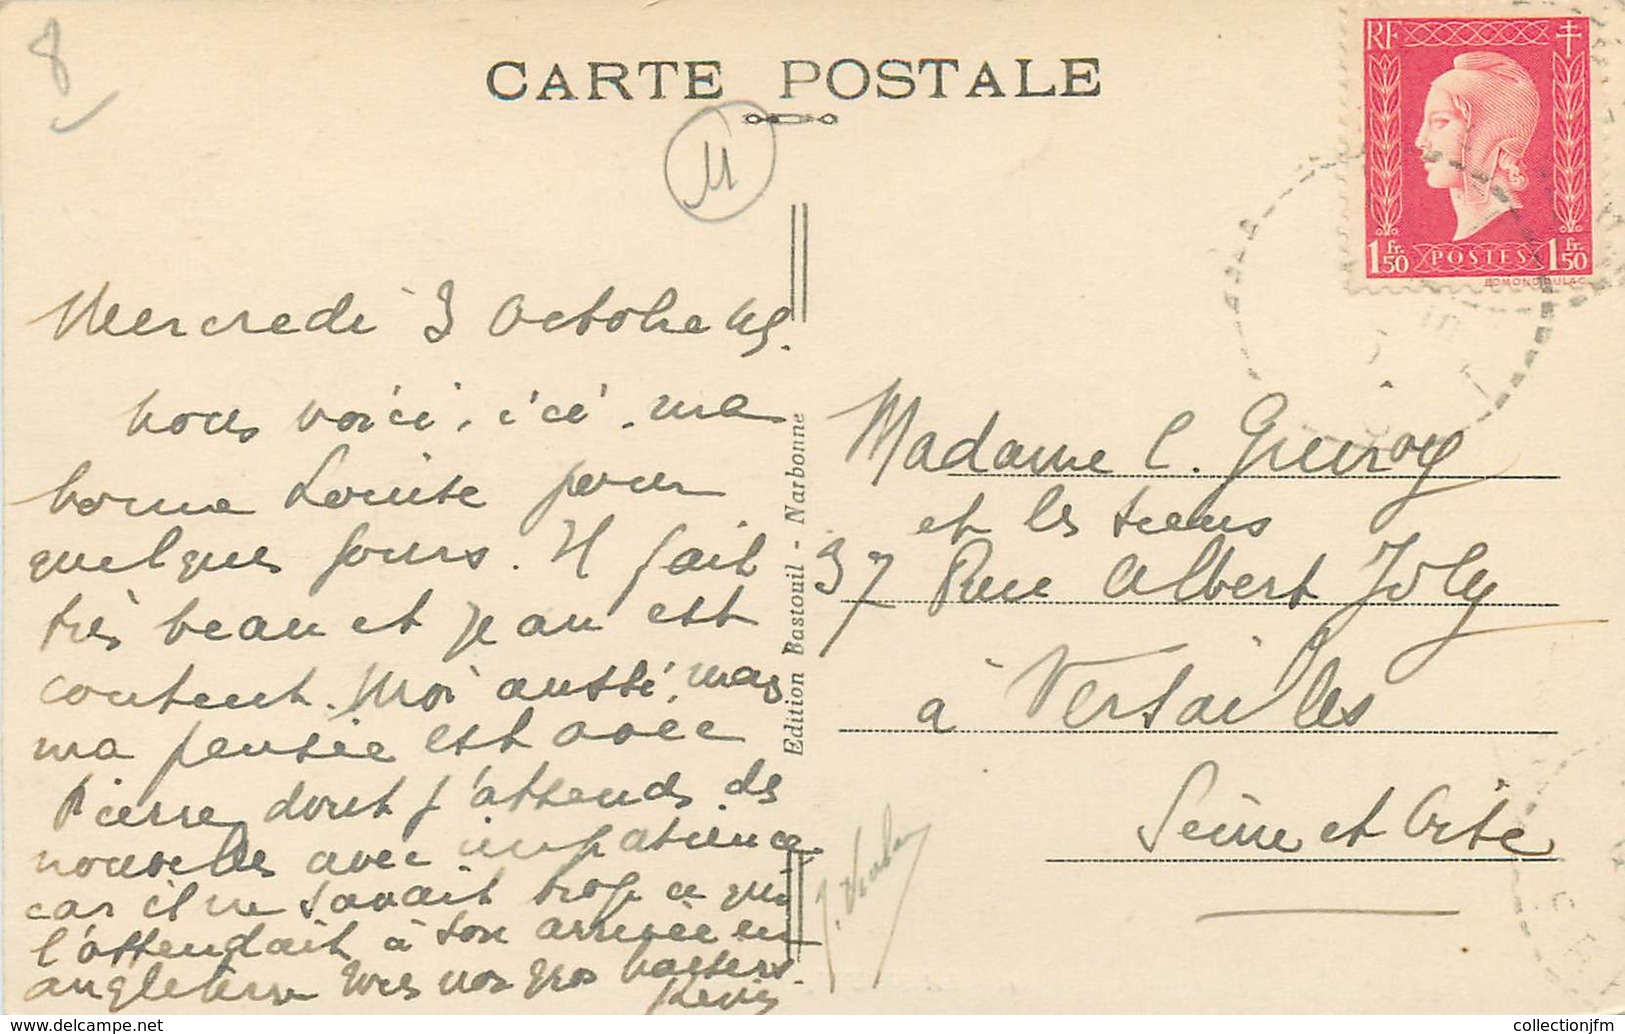 8
CARTE POSTALE
M
RF
1 Fr. 50
POSTES
1 Fr. 50
EDMOND DULAC
Mercredi 3 Octobre 45.
nous voici, ici, ma
bonne Louise pour
quelques jours. Il fait
très beau et Jean est
content. Moi aussi, mais
ma pensée est avec
Pierre dont j'attends des
nouvelles avec impatience
car il ne savait trop ce qui
l'attendait à son arrivée en
angleterre nos gros baisers.
Edition Bastouil - Narbonne
Madame C.
et les siens
37 Rue Albert Joly
à Versailles
Seine et Oise
collectionjfm